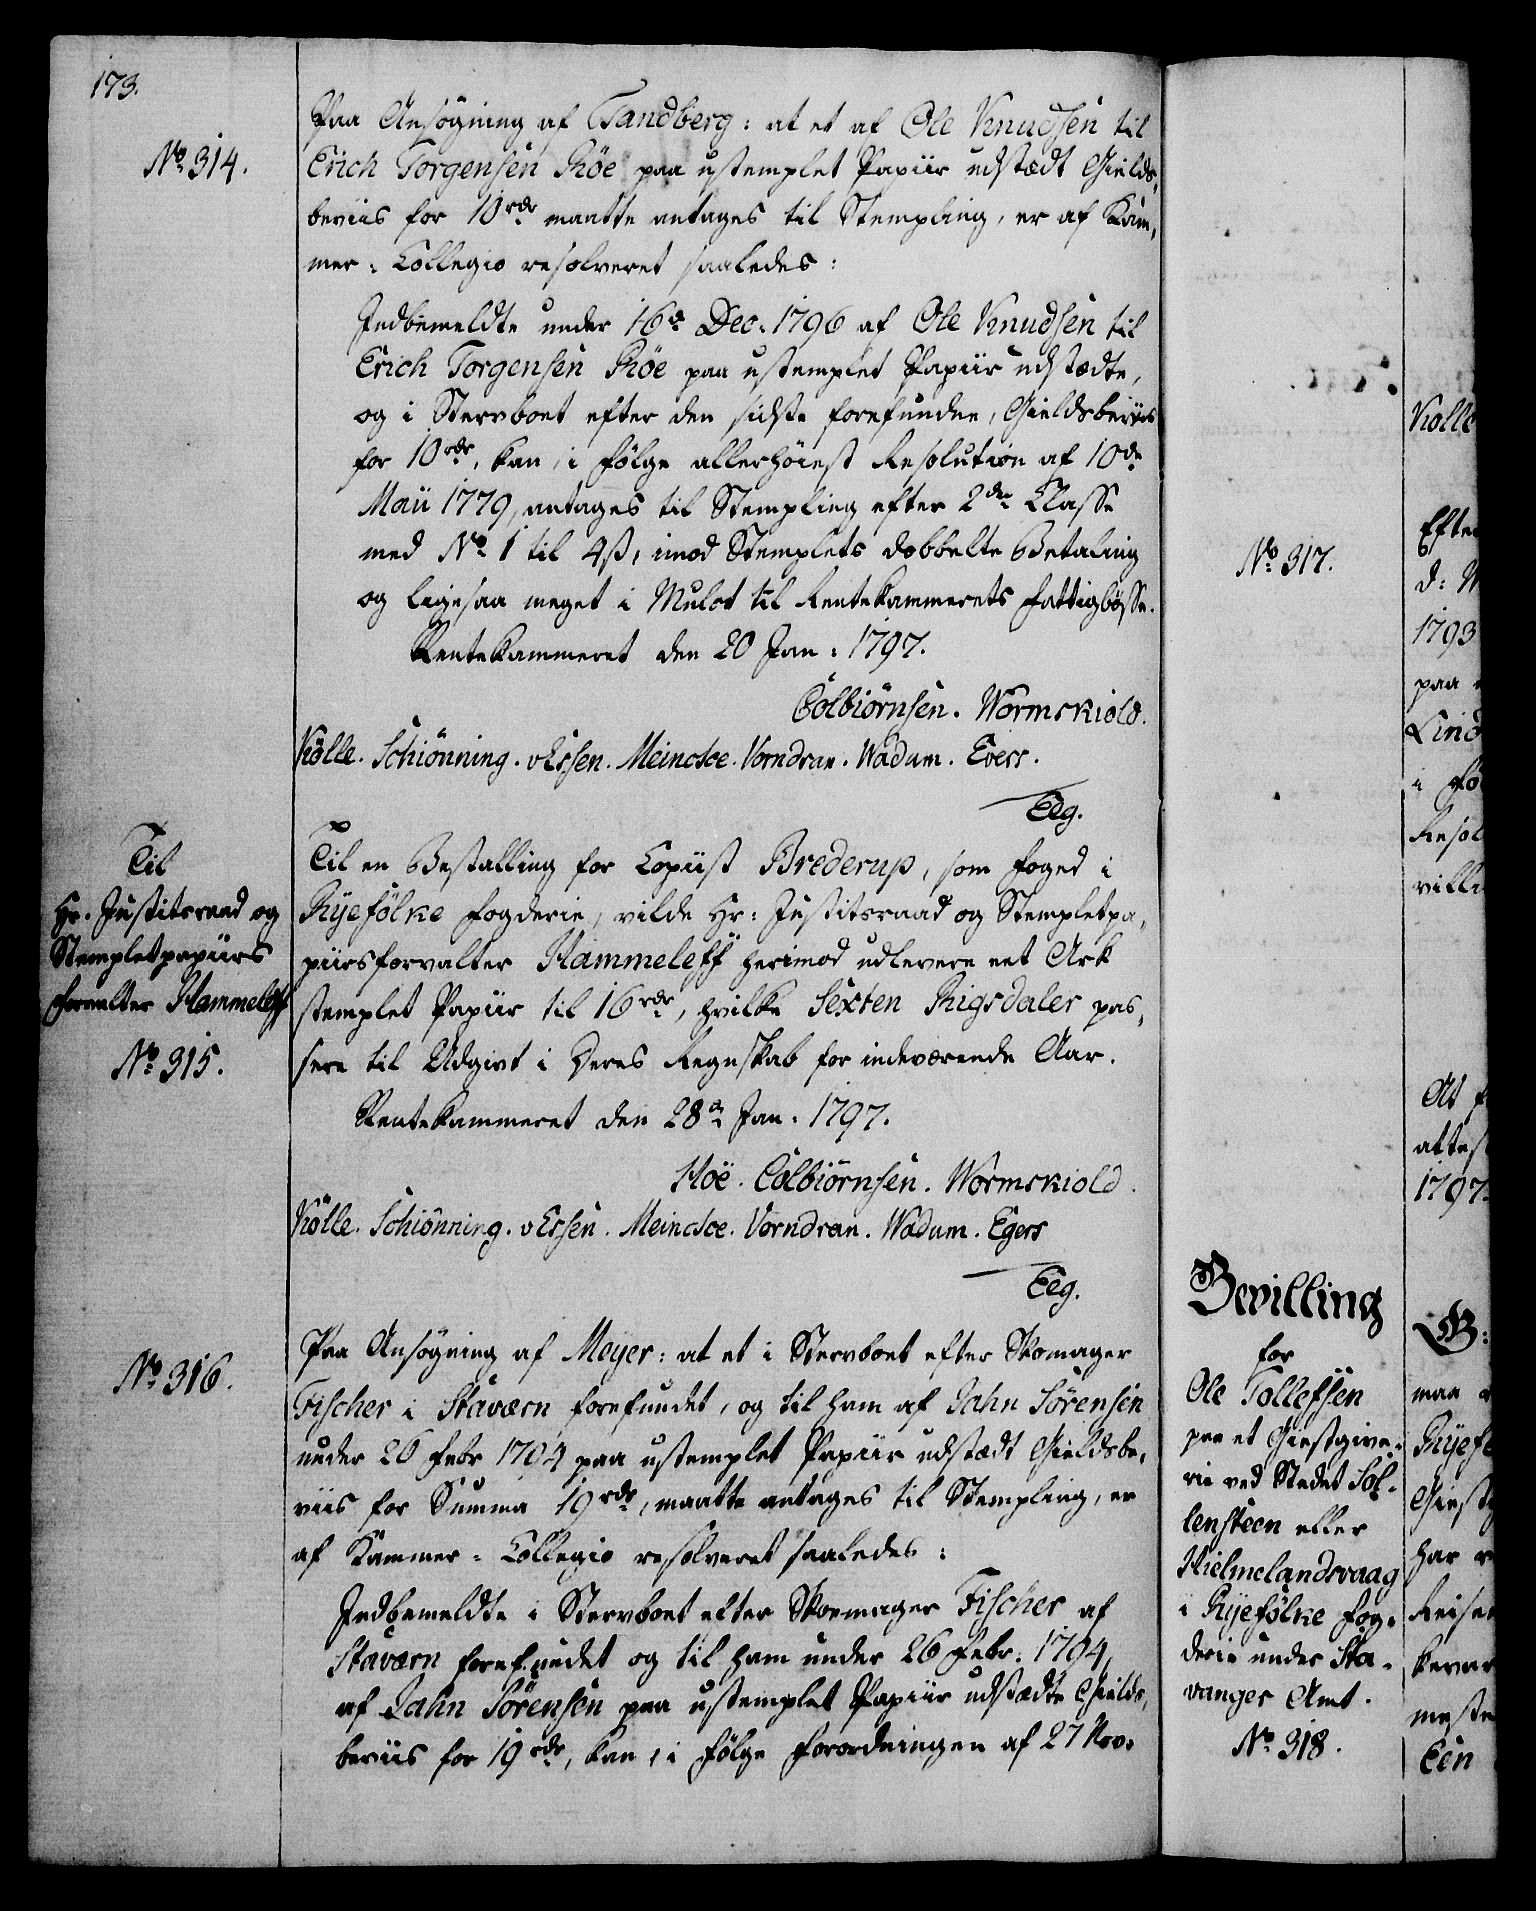 173.
No 314.
Paa Ansögning af Tandberg: at et af Ole Knudsen til
Erich Torgensen Röe paa ustemplet Papiir udstædt Gields,
beviis for 10 rdr maatte antages til Stempling, er af Kam,
mer-Collegio resolveret saaledes:
Indbemeldte under 16de Dec: 1796 af Ole Knudsen til
Erich Torgensen Röe paa ustemplet Papiir udstædte,
og i Stervboet efter den sidste forefundne, Gieldsbeviis
for 10 rdr, kan, i Fölge allerhöiest Resolution af 10de
Maii 1779, antages til Stempling efter 2den Classe
med No 1 til 4ß, imod Stemplets dobbelte Betaling
og ligesaa meget i Mulct til Rentekammerets Fattigbösse.
Rentekammeret den 20 Jan: 1797.
Colbiörnsen. Wormskiold.
Kölle. Schiönning. vEssen. Meincke. Vorndran. Wadum. Evers.
Eeg.
Til
Hr. Justitsraad og
Stempletpapiirs
forvalter Hammeleff
No 315.
Til en Bestalling for Copiist Brederup, som Foged i
Ryefölke Fogderie, vilde Hr: Justitsraad og Stempletpa,
piirsforvalter Hammeleff herimod udlevere eet Ark
stemplet Papiir til 16 rdr, hvilke Sexten Rigsdaler pas,
sere til Udgivt i Deres Regnskab for indeværende Aar.
Rentekammeret den 28de Jan: 1797.
Höe. Colbiörnsen. Wormskiold.
Kölle. Schiönning. vEssen. Meincke. Vorndran. Wadum. Egers
Eeg.
No 316.
Paa Ansögning af Meyer: at et i Stervboet efter Skomager
Fischer i Staværn forefundet, og til ham af Jahn Sörensen
under 26 Febr 1794 paa ustemplet Papiir udstædt Gieldsbe,
viis for Summa 19 rdr, maatte antages til Stempling, er
af Kammer-Collegio resolveret saaledes:
Indbemeldte i Stervboet efter Skoemager Fischer af
Staværn forefundet og til ham under 26 Febr: 1794,
af Jahn Sörensen paa ustemplet Papiir udstædte Gields,
beviis for 19 rdr, kan, i Fölge Forordningen af 27 Nov:
No 317.
Bevilling
for
Ole Tollefsen
paa et Giestgive-
rie ved Stedet Sol-
lensteen eller
Hielmelandsvaag
i Ryefölke Fog-
derie under Sta-
vanger Amt.
No 318.
Kölle
Efter
d:
1793
paa
Lind
i Fö
Resol
ville
At
attes
1797.
maa
Ryefö
Giestg
har
Reise
mest
Een